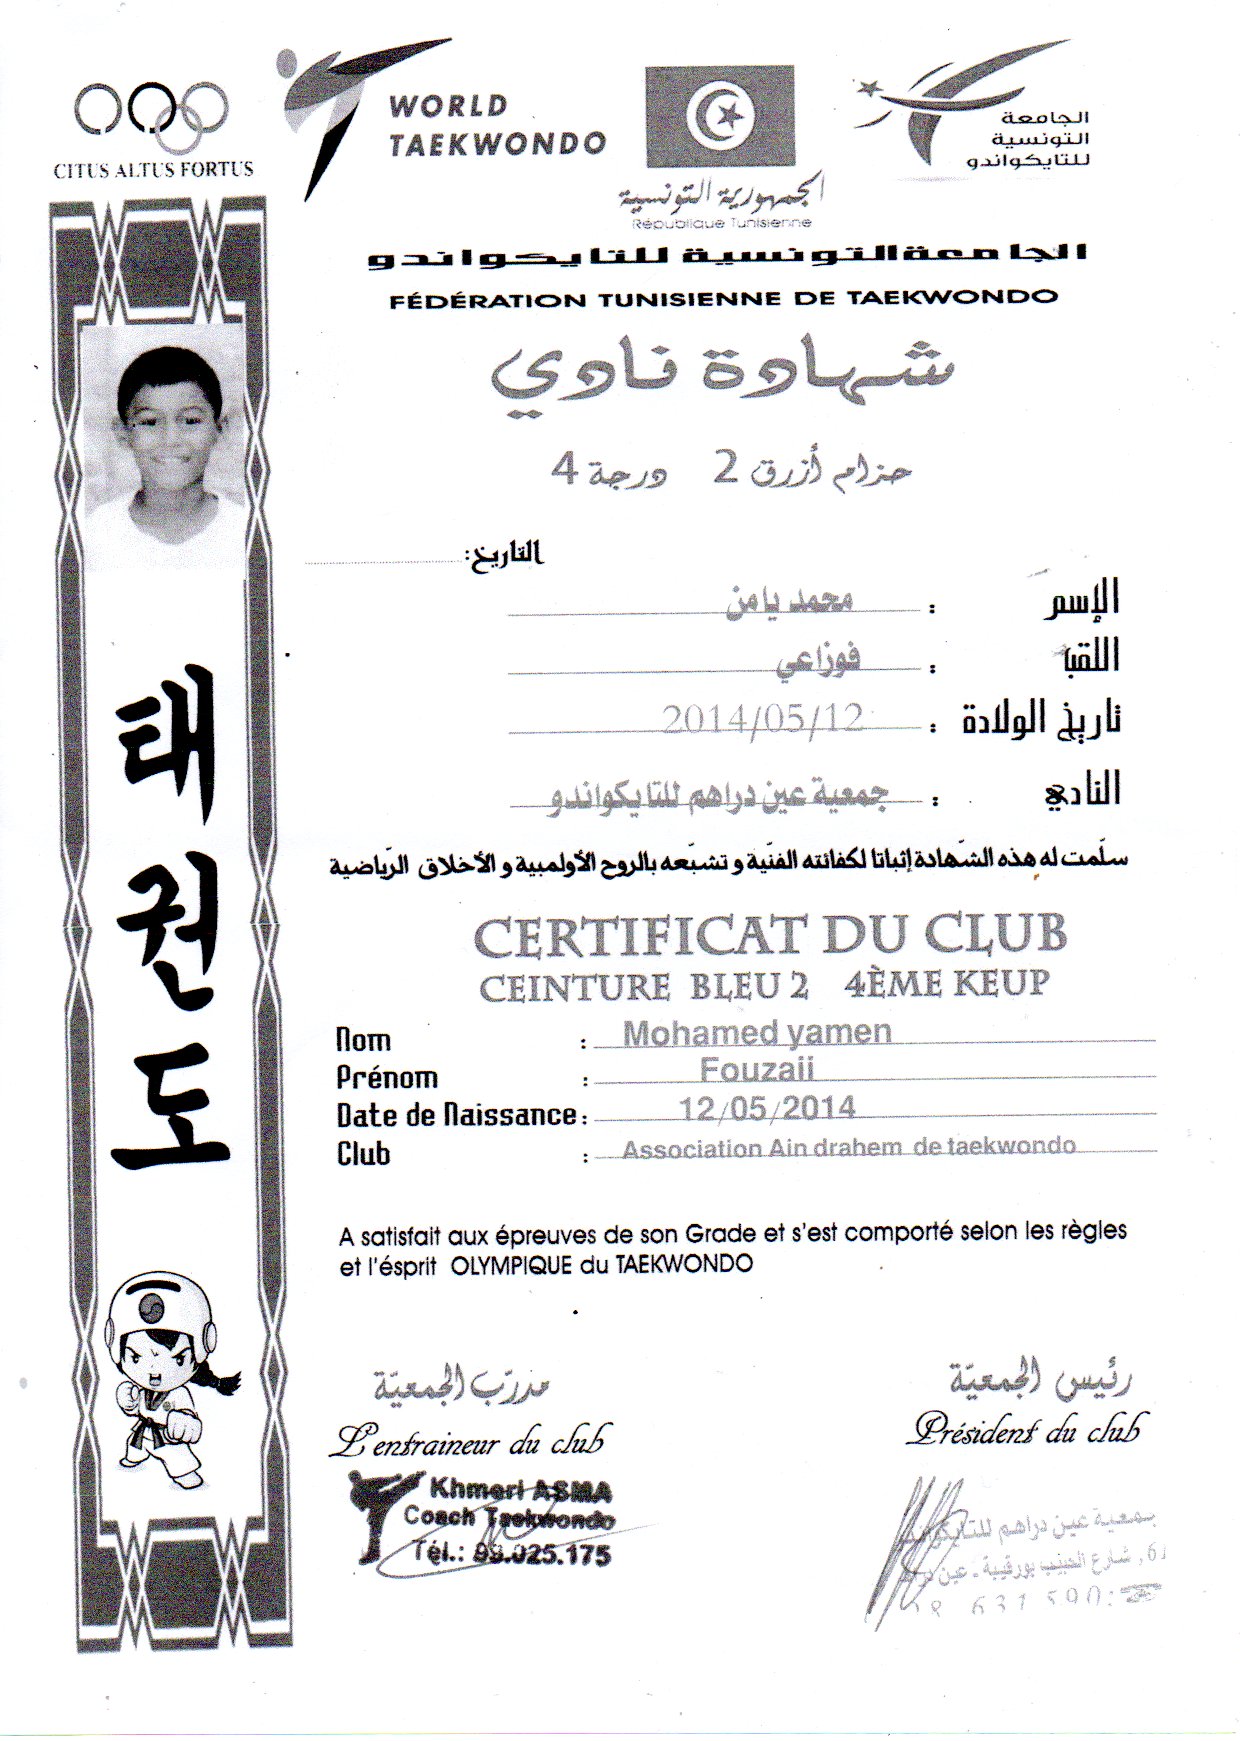 CITUS ALTUS FORTUS
WORLD
TAEKWONDO
الجمهورية التونسية
République Tunisienne
الجامعة
التونسية
للتايكواندو
الجامعة التونسية للتايكواندو
FÉDÉRATION TUNISIENNE DE TAEKWONDO
شهادة نادي
حزام أزرق 2 درجة 4
التاريخ:
الإسم : محمد يامن
اللقب : فوزاعي
تاريخ الولادة : 2014/05/12
النادي : جمعية عين دراهم للتايكواندو
سلّمت له هذه الشّهادة إثباتا لكفائته الفنّية و تشبّعه بالروح الأولمبية و الأخلاق الرّياضية
태권도
CERTIFICAT DU CLUB
CEINTURE BLEU 2 4ÈME KEUP
Nom : Mohamed yamen
Prénom : Fouzaii
Date de Naissance : 12/05/2014
Club : Association Ain drahem de taekwondo
A satisfait aux épreuves de son Grade et s'est comporté selon les règles
et l'ésprit OLYMPIQUE du TAEKWONDO
مدرّب الجمعيّة
L'entraineur du club
Khmeri ASMA
Coach Taekwondo
Tél.: 99.025.175
رئيس الجمعيّة
Président du club
جمعية عين دراهم للتايكواندو
شارع الحبيب بورقيبة - عين